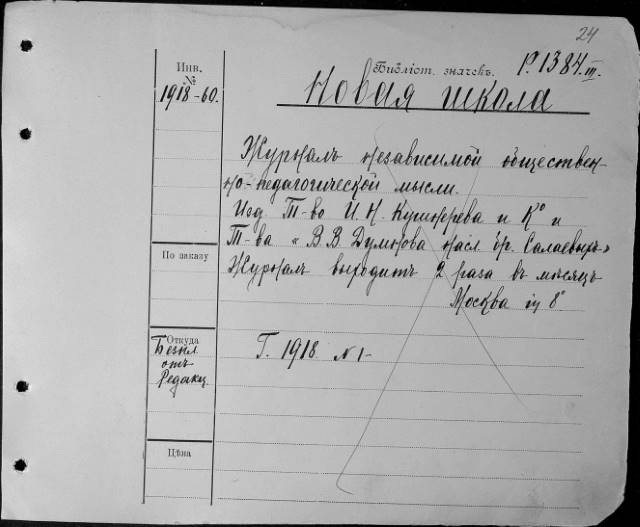 24
Инв.
№
1918-60.
Библіот. значекъ. Р. 1384 III.
Новая школа
Журналъ независимой обществен-
но-педагогической мысли.
Изд. Т-во И. Н. Кушнерева и Кº и
Т-ва « В. В. Думнова насл. бр. Салаевыхъ »
Журналъ выходитъ 2 раза въ мѣсяцъ
Москва in 8º
По заказу
Откуда
Безпл
отъ
Редакц.
Г. 1918. N 1-
Цѣна